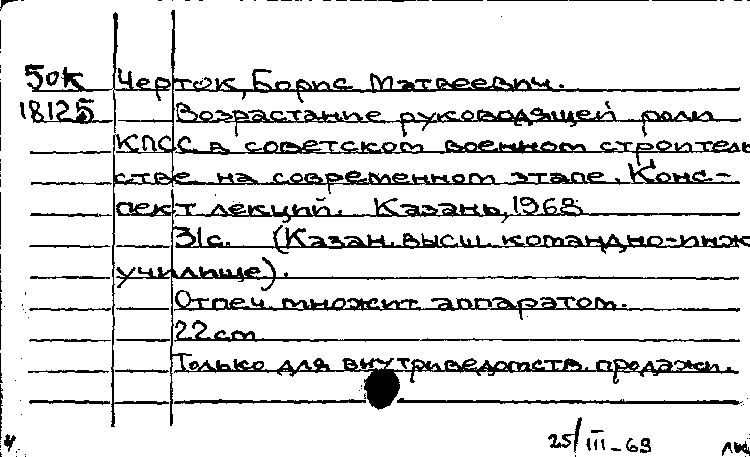 50к Черток, Борис Матвеевич.
18125 Возрастание руководящей роли
КПСС в советском военном строитель
стве на современном этапе. Конс-
пект лекций. Казань, 1968
31с. (Казан. высш. командно-инж
училище).
Отпеч. множит. аппаратом.
22 см
Только для внутриведомств. продажи.
25/III-69